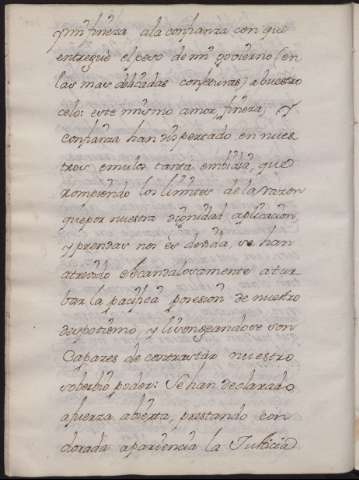 y mi fineza a la confianza con que
entregué el peso de mi govierno (en
las mas delicadas conjeturas) a buestro
celo: este mismo amor, fineza, y
confianza han dispertado en nues
tros emulos tanta embidia, que
rompiendo los limites de la razon
que por nuestra dignidad aplicacion
y prendas nos és devida, se han
atrevido escandalosamente a tur
bar la pacifica posesion de nuestro
despotismo y lisongeandose son
Capazes de contrastár nuestro
soberbio poder: Se han declarado
a fuerza abierta, prestando con
dorada apariencia la Justicia